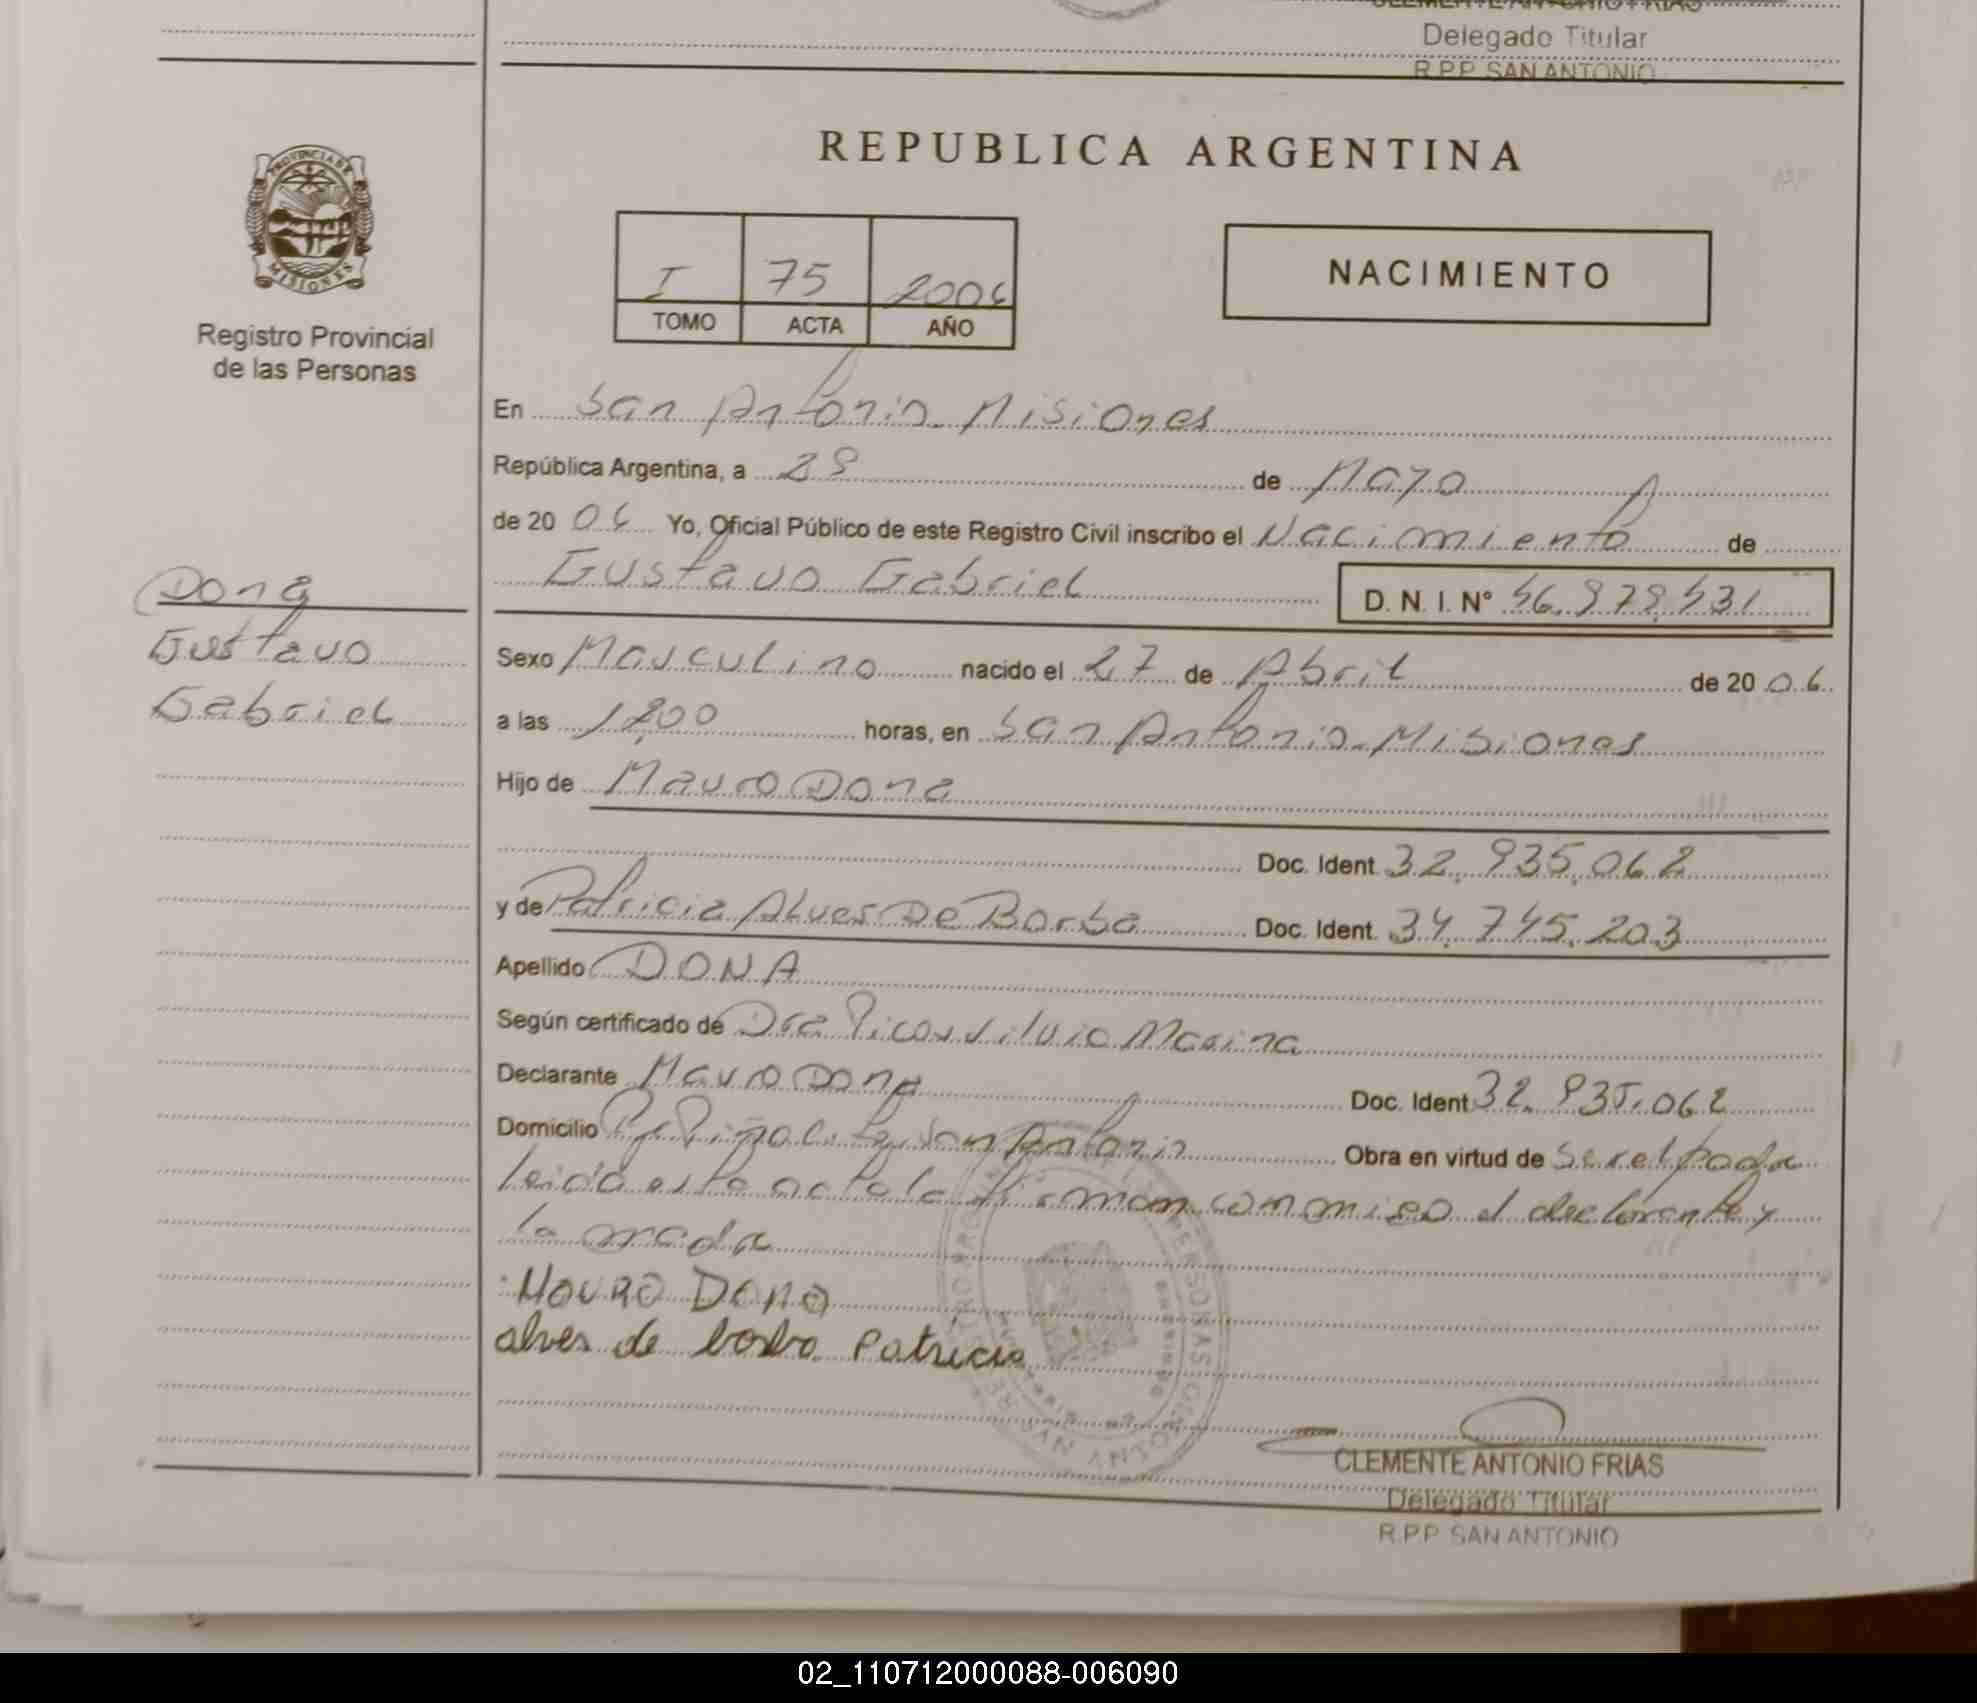 Delegado Titular
R.P.P. SAN ANTONIO
REPUBLICA ARGENTINA
PROVINCIA DE
MISIONES
Registro Provincial
de las Personas
I 75 2006
TOMO ACTA AÑO
NACIMIENTO
En San Antonio. Misiones
República Argentina, a 29 de Mayo
de 20 06 Yo, Oficial Público de este Registro Civil inscribo el Nacimiento de
Gustavo Gabriel D. N. I. N°
Dona
Gustavo
Gabriel
Sexo Masculino nacido el 27 de Abril de 20 06
a las horas, en San Antonio. Misiones
Hijo de Mauro Dona
Doc. Ident. 32.935.062
y de Patricia Alves De Borba Doc. Ident. 34.745.203
Apellido DONA
Según certificado de Dra Marina
Declarante Mauro Dona Doc. Ident 32.935.062
Domicilio San Antonio Obra en virtud de
leida esta acta la firman conmigo el declarante y
la madre
MAURO DONA
alves de borba Patricia
CLEMENTE ANTONIO FRIAS
Delegado Titular
R.P.P. SAN ANTONIO
02_110712000088-006090